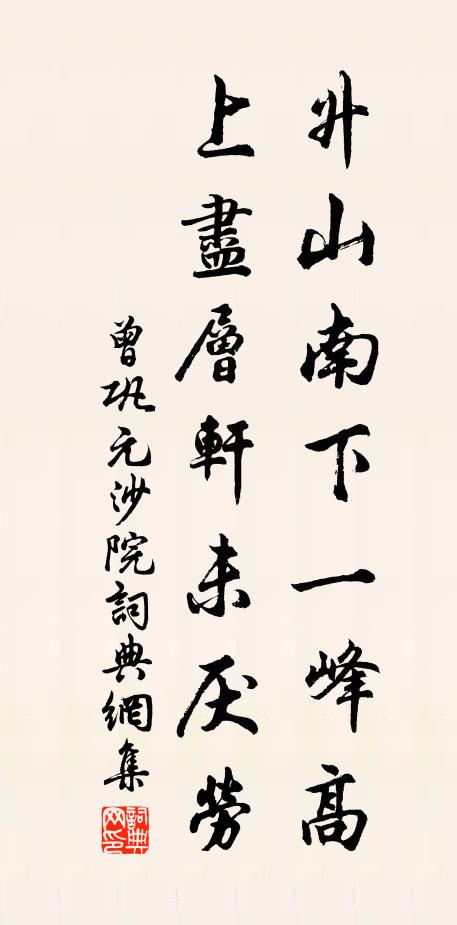 升山南下一峰高
上盡層軒未厭勞
曾巩元沙院詞典網集
詞典网印